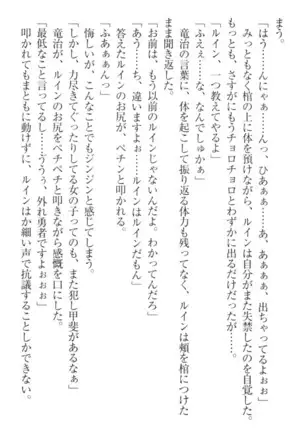 まう。
「はう……んにゃぁ……んっ、ひあぁぁ……あ、あぁぁぁ、出ちゃってるよぉぉ」
みっともなく棺の上に体を預けながら、ルインは自分がまた失禁したのを自覚した。
もっとも、さすがにもうチョロチョロとわずかに出るだけだったが……。
「ルイン、一つ教えてやるよ」
「ふえぇ……な、なんでしゅかぁ」
竜治の言葉に、体を起こして振り返る体力も残ってなく、ルインは頬を棺につけた
まま聞き返した。
「お前は、もう以前のルインじゃないんだよ。わかってんだろ」
「あう……ち、違いますよぉ……ルインはルインだもん」
答えたルインのお尻が、ペチンと叩かれる。
「ふあぁぁんっ」
悔しいが、こんなことでもジンジンと感じてしまう。
「しかし、力尽きてぐったりしてる女の子ってのも、また犯し甲斐があるなぁ」
竜治が、ルインのお尻をペチペチと叩きながら感慨を口にした。
「最低なこと言ってるし……ううぅ、外れ勇者ですよぉぉぉ」
叩かれてもまともに動けずに、ルインはか細い声で抗議することしかできない。